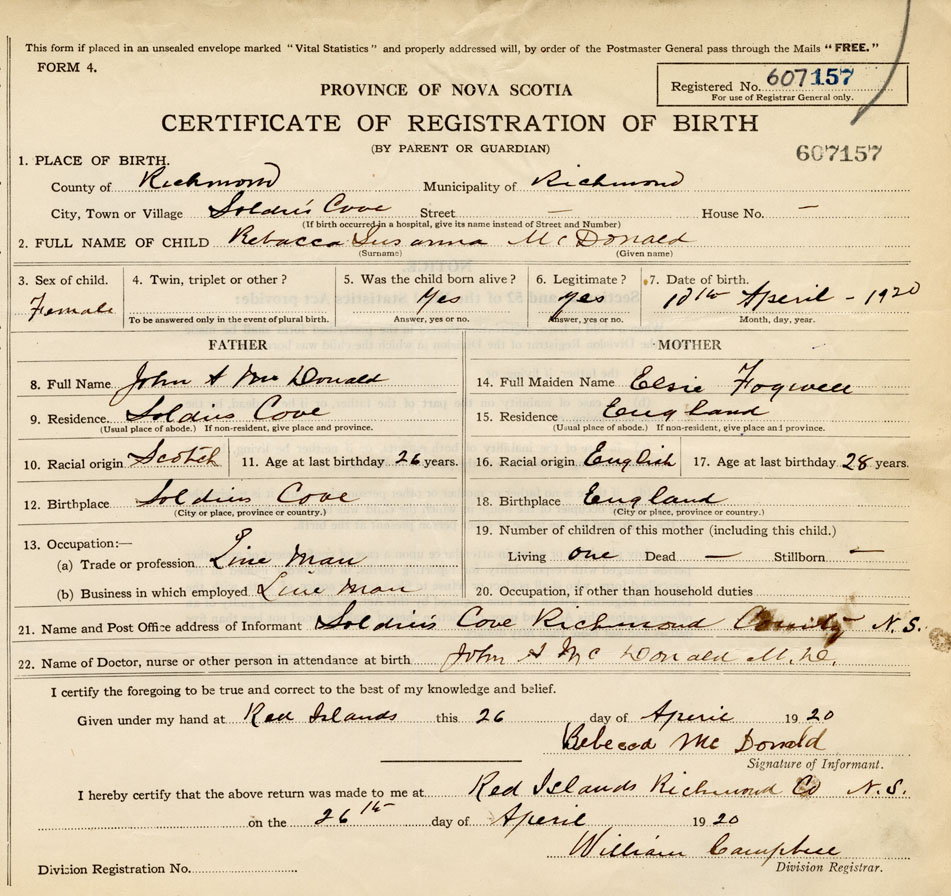 This form if placed in an unsealed envelope marked "Vital Statistics" and properly addressed will, by order of the Postmaster General pass through the Mails "FREE."
FORM 4.
Registered No. 607157
For use of Registrar General only.
PROVINCE OF NOVA SCOTIA
CERTIFICATE OF REGISTRATION OF BIRTH
(BY PARENT OR GUARDIAN)
607157
1. PLACE OF BIRTH.
County of Richmond Municipality of Richmond
City, Town or Village Soldiés Cove Street — House No. —
(If birth occurred in a hospital, give its name instead of Street and Number)
2. FULL NAME OF CHILD Rebacca Susanna McDonald
(Surname) (Given name)
3. Sex of child. 4. Twin, triplet or other? 5. Was the child born alive? 6. Legitimate? 7. Date of birth.
Female Yes Yes 10th April - 1920
To be answered only in the event of plural birth. Answer, yes or no. Answer, yes or no. Month, day, year.
FATHER MOTHER
8. Full Name John A McDonald 14. Full Maiden Name Elsie Fogwell
9. Residence. Soldiés Cove 15. Residence England
(Usual place of abode.) If non-resident, give place and province. (Usual place of abode.) If non-resident, give place and province.
10. Racial origin Scotch 11. Age at last birthday 26 years. 16. Racial origin English 17. Age at last birthday 28 years.
12. Birthplace Soldiés Cove 18. Birthplace England
(City or place, province or country.) (City or place, province or country.)
13. Occupation:— 19. Number of children of this mother (including this child.)
(a) Trade or profession Line Man Living one Dead — Stillborn —
(b) Business in which employed Line Man 20. Occupation, if other than household duties
21. Name and Post Office address of Informant Soldiés Cove Richmond County N.S.
22. Name of Doctor, nurse or other person in attendance at birth John A McDonald M.D.
I certify the foregoing to be true and correct to the best of my knowledge and belief.
Given under my hand at Red Islands this 26 day of Aperil 1920
McDonald
Signature of Informant.
I hereby certify that the above return was made to me at Red Islands Richmond Co N.S.
on the 26th day of Aperil 1920
William Campbell
Division Registrar.
Division Registration No.